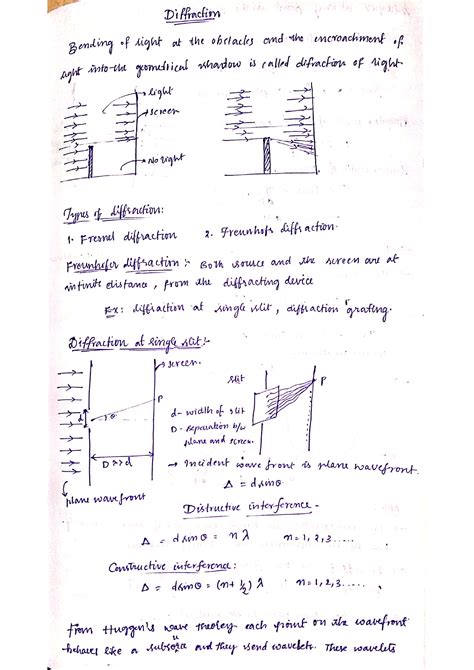 Diffraction
Bending of light at the obstacles and the encroachment of
light into the geometrical shadow is called diffraction of light.
light
screen
No light
Types of diffraction:
1. Fresnel diffraction 2. Freunhofs diffraction.
Freunhofer diffraction :- Both source and the screen are at
infinite distance, from the diffracting device
Ex: diffraction at single slit, diffraction grating.
Diffraction at single slit:-
screen.
slit
P
P
d
θ
d - width of slit
D - separation b/w
plane and screen.
D >> d
→ Incident wave front is plane wavefront.
plane wavefront
Δ = d sinθ
Distructive interference -
Δ = d sinθ = n λ n = 1, 2, 3 .....
Constructive interference:
Δ = d sinθ = (n + 1/2) λ n = 1, 2, 3, .....
From Huggen's wave theoley each point on the wavefront
behaves like a and they send wavelets. These wavelets